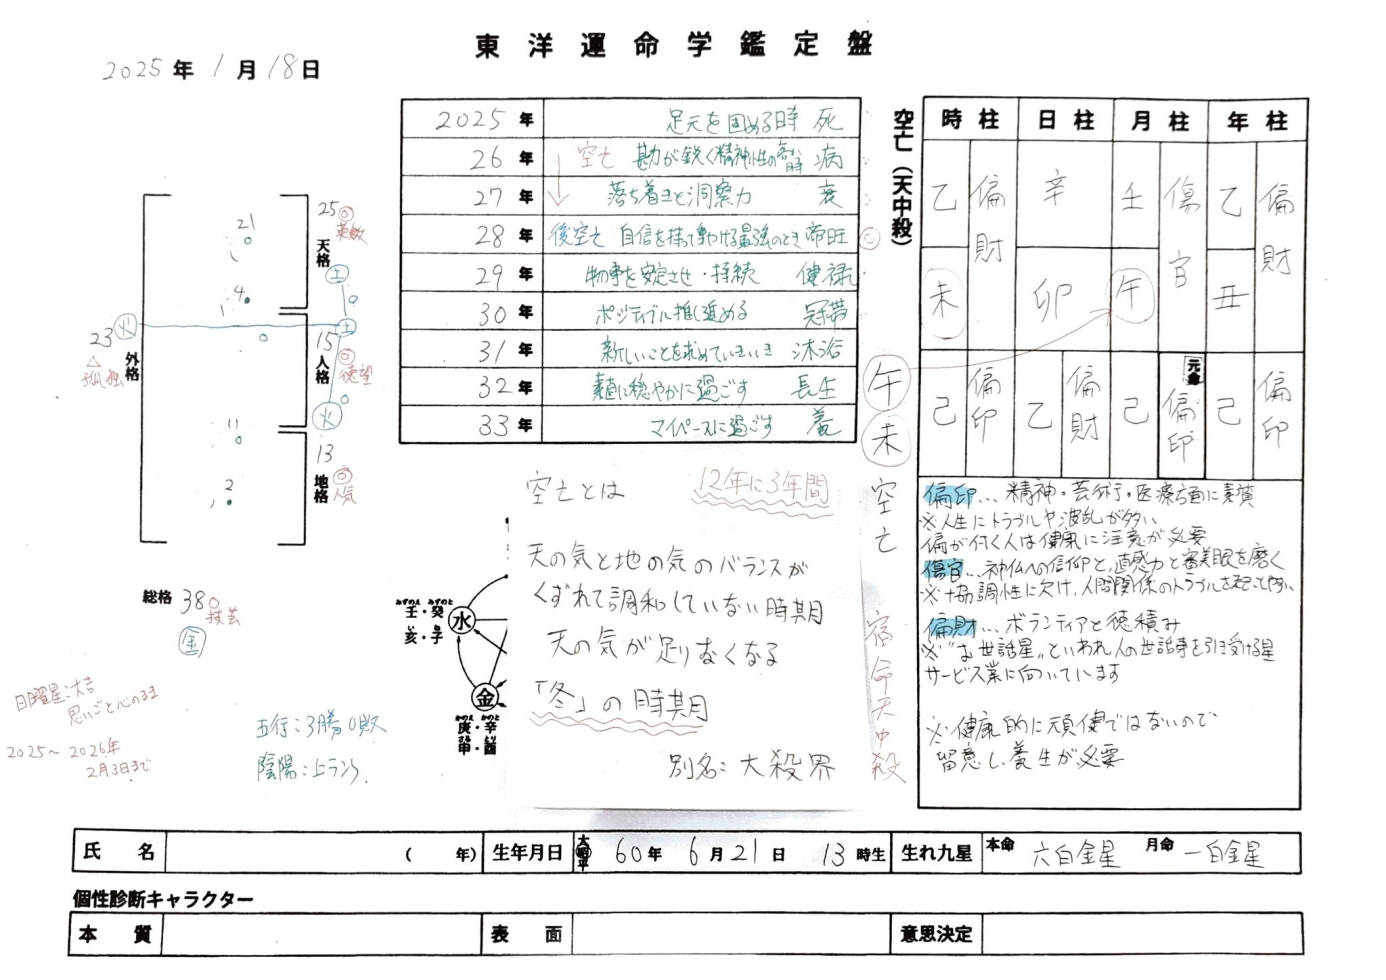 東洋運命学鑑定盤
2025年 1月18日
2025年 足元を固める時 死
26年 空亡 勘が鋭く精神性の高い時 病
27年 落ち着きと洞察力 衰
28年 後空亡 自信を持って動ける最強のとき 帝旺
29年 物事を安定させ・持続 健禄
30年 ポジティブに推し進める 冠帯
31年 新しいことを求めていきいき 沐浴
32年 素直に穏やかに過ごす 長生
33年 マイペースに過ごす 養
空亡(天中殺)
午
未
空亡
宿命天中殺
時柱 日柱 月柱 年柱
乙 偏財 辛 壬 傷官 乙 偏財
未 卯 午 丑
元命
己 偏印 乙 偏財 己 偏印 己 偏印
偏印…精神・芸術・医療方面に素質
※人生にトラブルや波乱が多い
偏が付く人は健康に注意が必要
傷官…神仏への信仰と、直感力と審美眼を磨く
※協調性に欠け、人間関係のトラブルを起こしやすい
偏財…ボランティアと徳積み
※"お世話星"といわれ人の世話事を引き受ける星
サービス業に向いています
※健康的に頑健ではないので
留意し、養生が必要
21
4
11
2
25 ◎ 英敏
天格
土
土
23 火
△
孤独
外格
15 ◎ 徳望
人格
火
13 ◎ 人気
地格
総格 38 ○ 技芸
金
日曜星:大吉
思いごと心のまま
2025〜2026年
2月3日まで
五行:3勝0敗
陰陽:上ランク
みずのえ みずのと
壬・癸
い ね
亥・子
水
金
かのえ かのと
庚・辛
さる とり
申・酉
空亡とは 12年に3年間
天の気と地の気のバランスが
くずれて調和していない時期
天の気が足りなくなる
「冬」の時期
別名:大殺界
氏名 ( 年) 生年月日 大昭平 60年 6月21日 13時生 生れ九星 本命 六白金星 月命 一白金星
個性診断キャラクター
本質 表面 意思決定